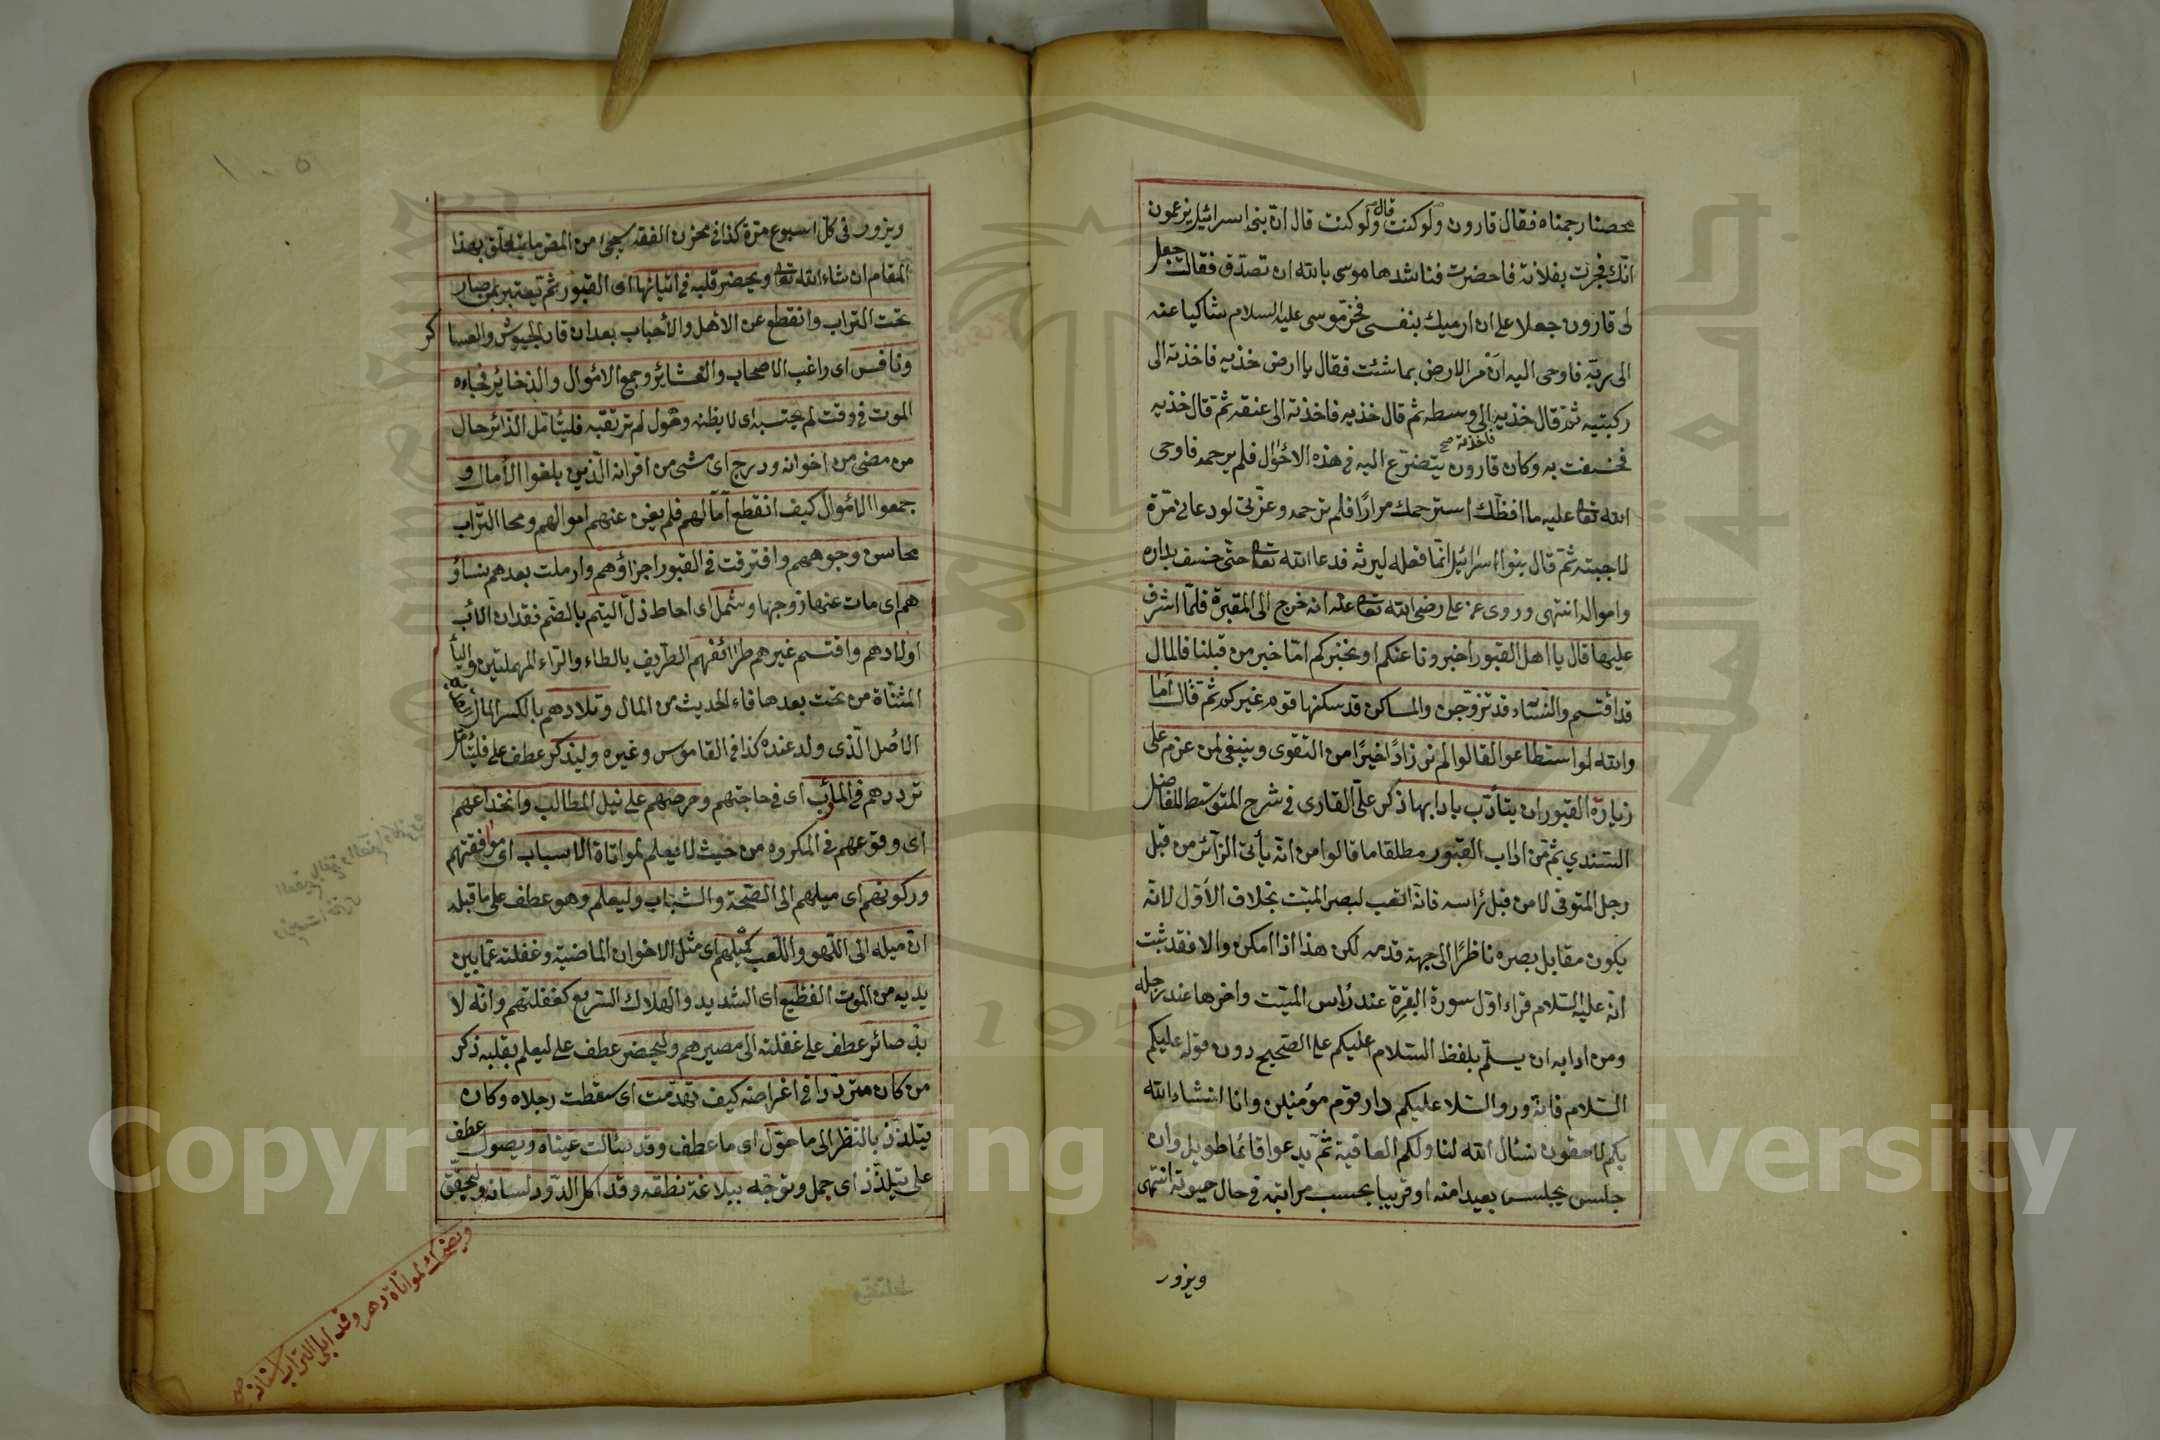 محصنا رجمناه فقال قارون ولو كنت قال ولو كنت قال ان بنى اسرائيل يزعمون
انك فجرت بفلانة فاحضرت فناشدها موسى بالله ان تصدق فقالت جعل
لى قارون جعلا على ان ارميك بنفسى فخر موسى عليه السلام شاكيا عنه
الى ربه فاوحى اليه ان مر الارض بما شئت فقال يا ارض خذيه فاخذته الى
ركبتيه ثم قال خذيه الى وسطه ثم قال خذيه فاخذته الى عنقه ثم قال خذيه
فاخذته صح
فخسفت به وكان قارون يتضرع اليه فى هذه الاحوال فلم يرحمه فاوحى
الله تعالى عليه ما افظك استرحمك مرارا فلم ترحمه وعزتى لو دعانى مرة
لاجبته ثم قال بنوا اسرائيل انما فعله ليرثه فدعا الله تعالى حتى خسف بداره
وامواله انتهى وروى عن على رضى الله تعالى عنه انه خرج الى المقبرة فلما اشرف
عليها قال يا اهل القبور اخبرونا عنكم او نخبركم اما خبر من قبلنا فالمال
قد اقتسم والنساء قد تزوجن والمساكن قد سكنها قوم غيركم ثم قال اما
والله لو استطاعوا لقالوا لم نر زادا خيرا من التقوى وينبغى لمن عزم على
زيارة القبور ان يتأدب بادابها ذكر على القارى فى شرح المتوسط المفاضل
السندي ثم من اداب القبور مطلقا ما قالوا من انه يأتى الزائر من قبل
رجل المتوفى لا من قبل رأسه فانه اتعب لبصر الميت بخلاف الأول لانه
يكون مقابل بصره ناظرا الى جهة قدمه لكن هذا اذا امكن والا فقد ثبت
انه عليه السلام قراء اول سورة البقرة عند رأس الميت واخرها عند رجله
ومن ادابه ان يسلم بلفظ السلام عليكم على الصحيح دون قوله عليكم
السلام فانه ورد السلا عليكم دار قوم مؤمنين وانا انشاء الله
بكم لاحقون نسئال الله لنا ولكم العافية ثم يدعوا قائما طويل وان
جلس يجلس بعيدا منه او قريبا بحسب مراتبه فى حال حيوته انتهى
ويزور
ويزور فى كل اسبوع مرة كذا فى مخزن الفقه سيجئ من المص ما يتعلق بهذا
المقام ان شاء الله تعالى ويحضر قلبه فى اتيانها اى القبور ثم يعتبر بمن صار
تحت التراب وانقطع عن الأهل والأحباب بعد ان قاد الجيوش والعساكر
ونافس اى راغب الاصحاب والعشائر وجمع الأموال والذخائر فجاءه
الموت فى وقت لم يحتسبه اى لا يظنه وهول لم ترتقبه فليتأمل الزائر حال
من مضى من اخوانه ودرج اى مشى من اقرانه الذين بلغوا الأمال و
جمعوا الأموال كيف انقطع آمالهم فلم يغن عنهم اموالهم ومحا التراب
محاسن وجوههم وافترقت فى القبور اجزاؤهم وارملت بعدهم نساؤ
هم اى مات عنها زوجها وشمل اى احاط ذل اليتم بالضم فقدان الأب
اولادهم واقتسم غيرهم طرائفهم الطريف بالطاء والراء المهملتين والياء
المثناة من تحت بعدها فاء الحديث من المال وتلادهم بالكسر المال
الأصل الذى ولد عنده كذا فى القاموس وغيره وليذكر عطف على فليتأمل
ترددهم فى المأرب اى فى حاجتهم وحرصهم على نيل المطالب وانخداعهم
اى وقوعهم فى المكروه من حيث لا يعلم لمواتاة الاسباب اى موافقتهم
وركونهم اى ميلهم الى الصحة والشباب وليعلم وهو عطف على ما قبله
ان ميله الى اللهو واللعب كميلهم اى مثل الاخوان الماضية وغفلته عما بين
يديه من الموت الفظيع اى الشديد والهلاك السريع كغفلتهم وانه لا
بد صائر عطف على غفلته الى مصيرهم وليحضر عطف على ليعلم بقلبه ذكر
من كان مترددا فى اغراضه كيف تهدمت اى سقطت رجلاه وكان
يتلذذ بالنظر الى ما حوله اى ما عطف وقد سالت عيناه ويصول عطف
على يتلذذ اى جمل وتوجه ببلاغة نطقه وقد اكل الدود لسانه وليحقق
ويضحك لمواتاة دهره وقد ابلى التراب اسنانه صح